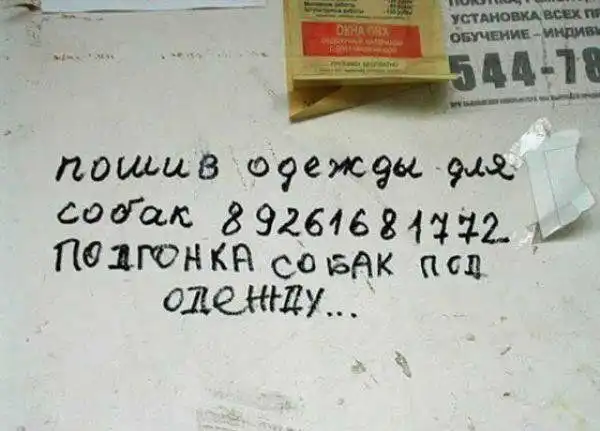 ОКНА ПВХ
УСТАНОВКА ВСЕХ
ОБУЧЕНИЕ - ИНДИВИ
544-78
пошив одежды для
собак 89261681772
ПОДГОНКА СОБАК ПОД
ОДЕЖДУ...